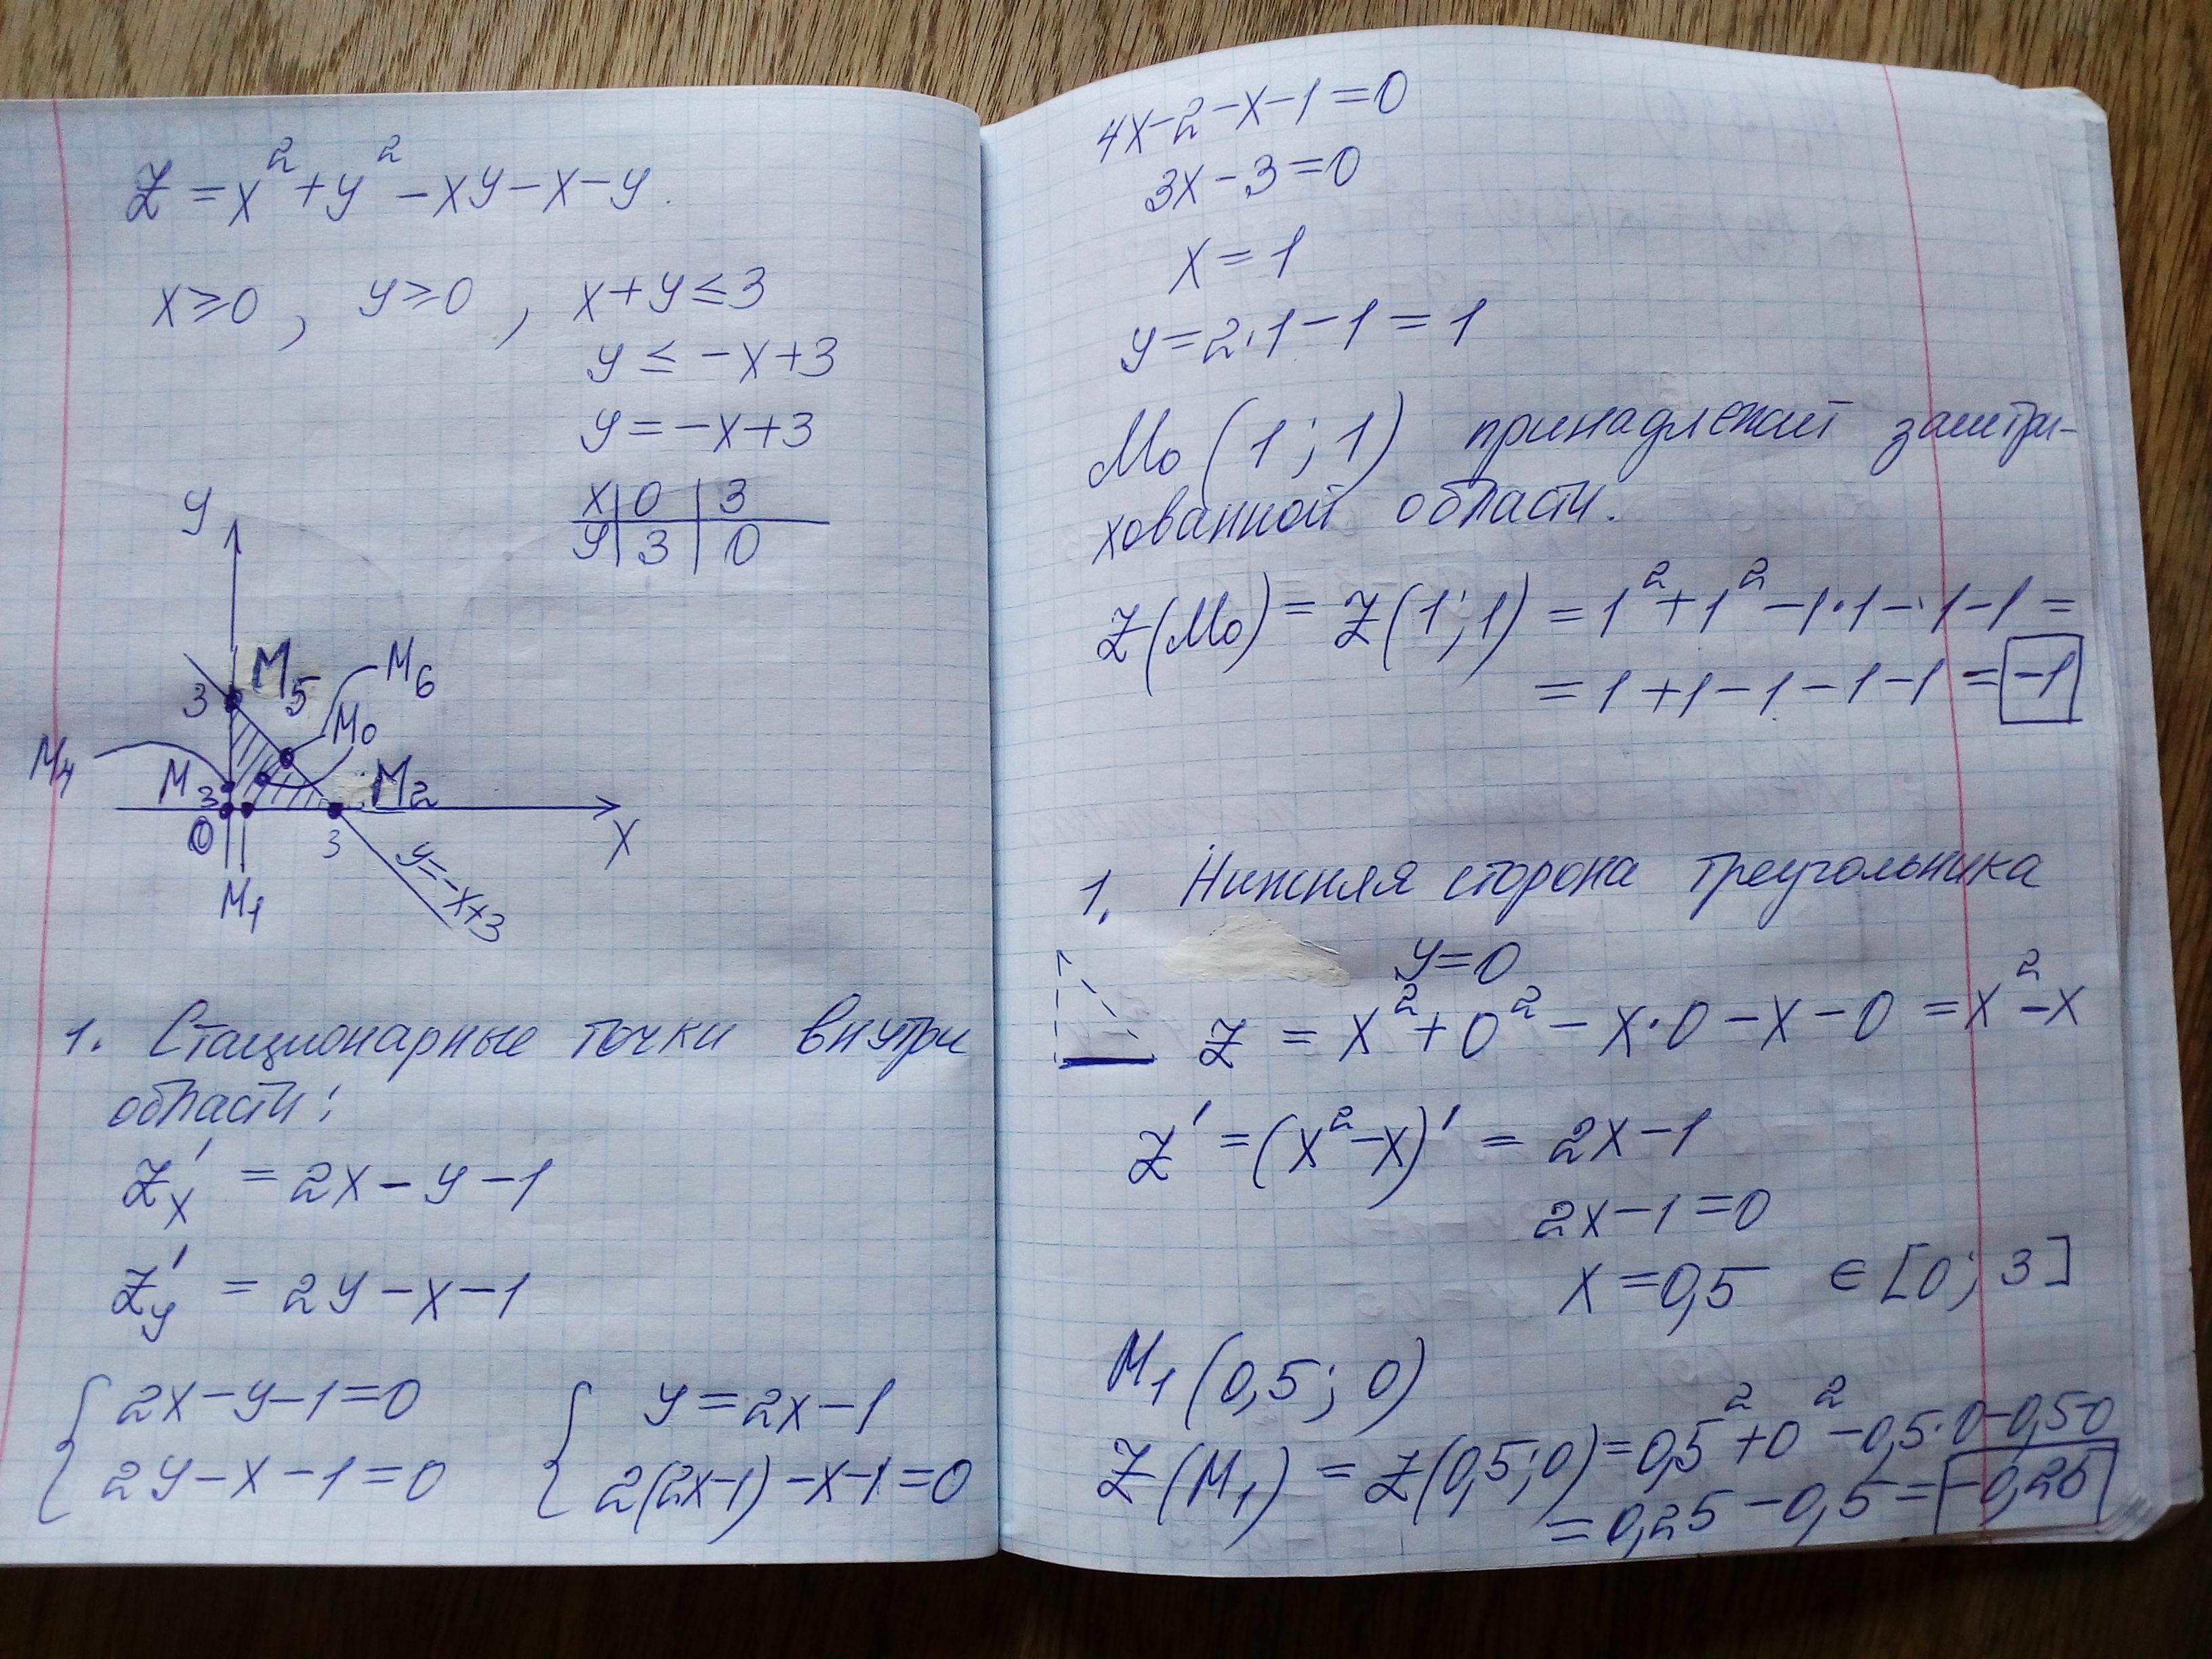 Z = x² + y² - xy - x - y.
x ≥ 0, y ≥ 0, x + y ≤ 3
y ≤ -x + 3
y = -x + 3
x | 0 | 3
y | 3 | 0
y
M5
M6
3
M0
M4
M3
M2
0
3
x
y = -x + 3
M1
1. Стационарные точки внутри
области:
Z'x = 2x - y - 1
Z'y = 2y - x - 1
{ 2x - y - 1 = 0 { y = 2x - 1
{ 2y - x - 1 = 0 { 2(2x-1) - x - 1 = 0
4x - 2 - x - 1 = 0
3x - 3 = 0
x = 1
y = 2·1 - 1 = 1
M0 (1; 1) принадлежит заштри-
хованной области.
Z(M0) = Z(1; 1) = 1² + 1² - 1·1 - 1 - 1 =
= 1 + 1 - 1 - 1 - 1 = -1
1. Нижняя сторона треугольника
y = 0
Z = x² + 0² - x·0 - x - 0 = x² - x
Z' = (x² - x)' = 2x - 1
2x - 1 = 0
x = 0,5 ∈ [0; 3]
M1 (0,5; 0)
Z(M1) = Z(0,5; 0) = 0,5² + 0² - 0,5·0 - 0,50
= 0,25 - 0,5 = -0,25